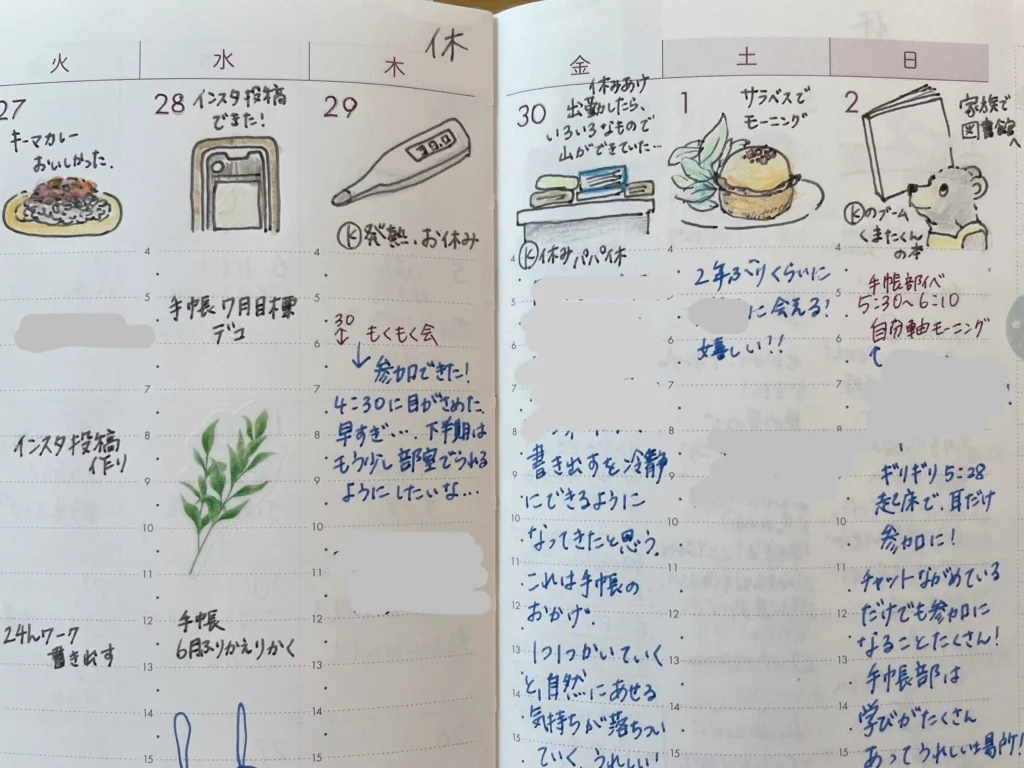 火
27
キーマカレー
おいしかった.
4
5
6
7
8
9
10
11
12
13
14
15
インスタ投稿
作り
24hワーク
書き出す
水
28
インスタ投稿
できた!
手帳7月目標
デコ
手帳
6月ふりかえりかく
木
休
29
39.0
Ⓚ発熱、お休み
30
もくもく会
↓
参加できた!
4:30に目がさめた、
早すぎ…. 下半期は
もう少し部室でうれる
ようにしたいな…
金
30
休みあけ
出勤したら、
いろいろなもので
山ができていた…
Ⓚ休みパパ休
書き出すを冷静
にできるように
なってきたと思う.
これは手帳の
おかげ.
1つ1つかいていく
と、自然にあせる
気持ちが落ちつい
ていく、うれしい!
土
1
サラベスで
モーニング
2年ぶりくらいに
に会える!
嬉しい!!
日
2
家族で
図書館
へ
Ⓚのブーム
くまたくん
の本
手帳部イベ
5:30~6:10
自分軸モーニング
ギリギリ5:28
起床で、耳だけ
参加に!
チャットながめている
だけでも参加に
なることたくさん!
手帳部は
学びがたくさん
あってうれしい場所!